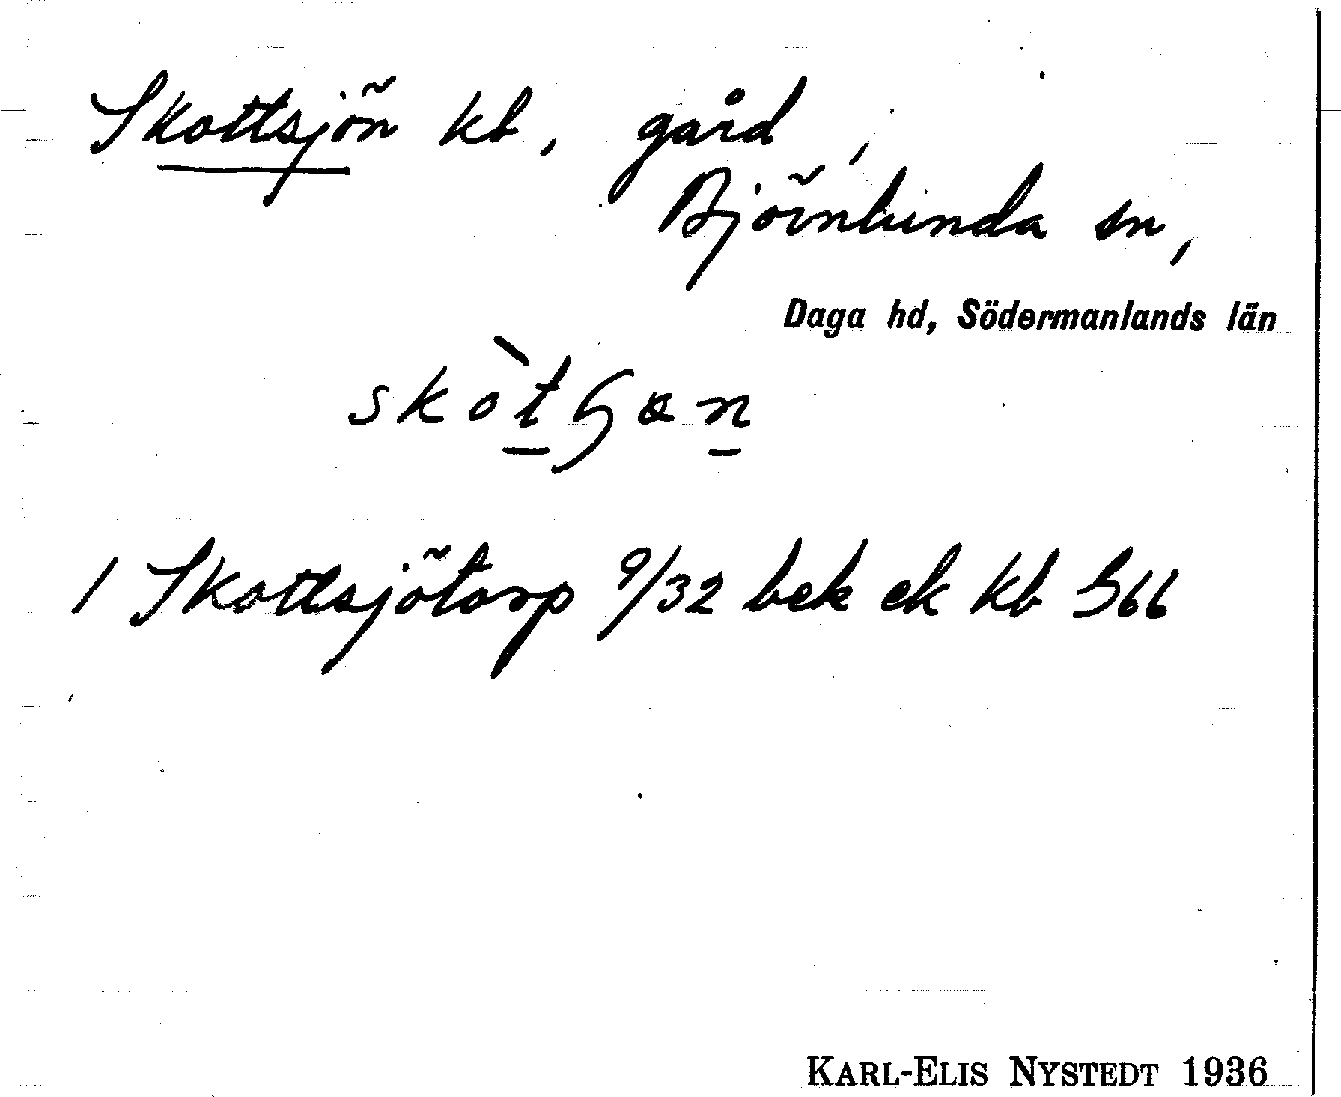 Skottsjön kb, gård,
Björnlunda sn,
Daga hd, Södermanlands län
skòtɧɷn
1 Skottsjötorp 9/32 bek ek kb S66
KARL-ELIS NYSTEDT 1936